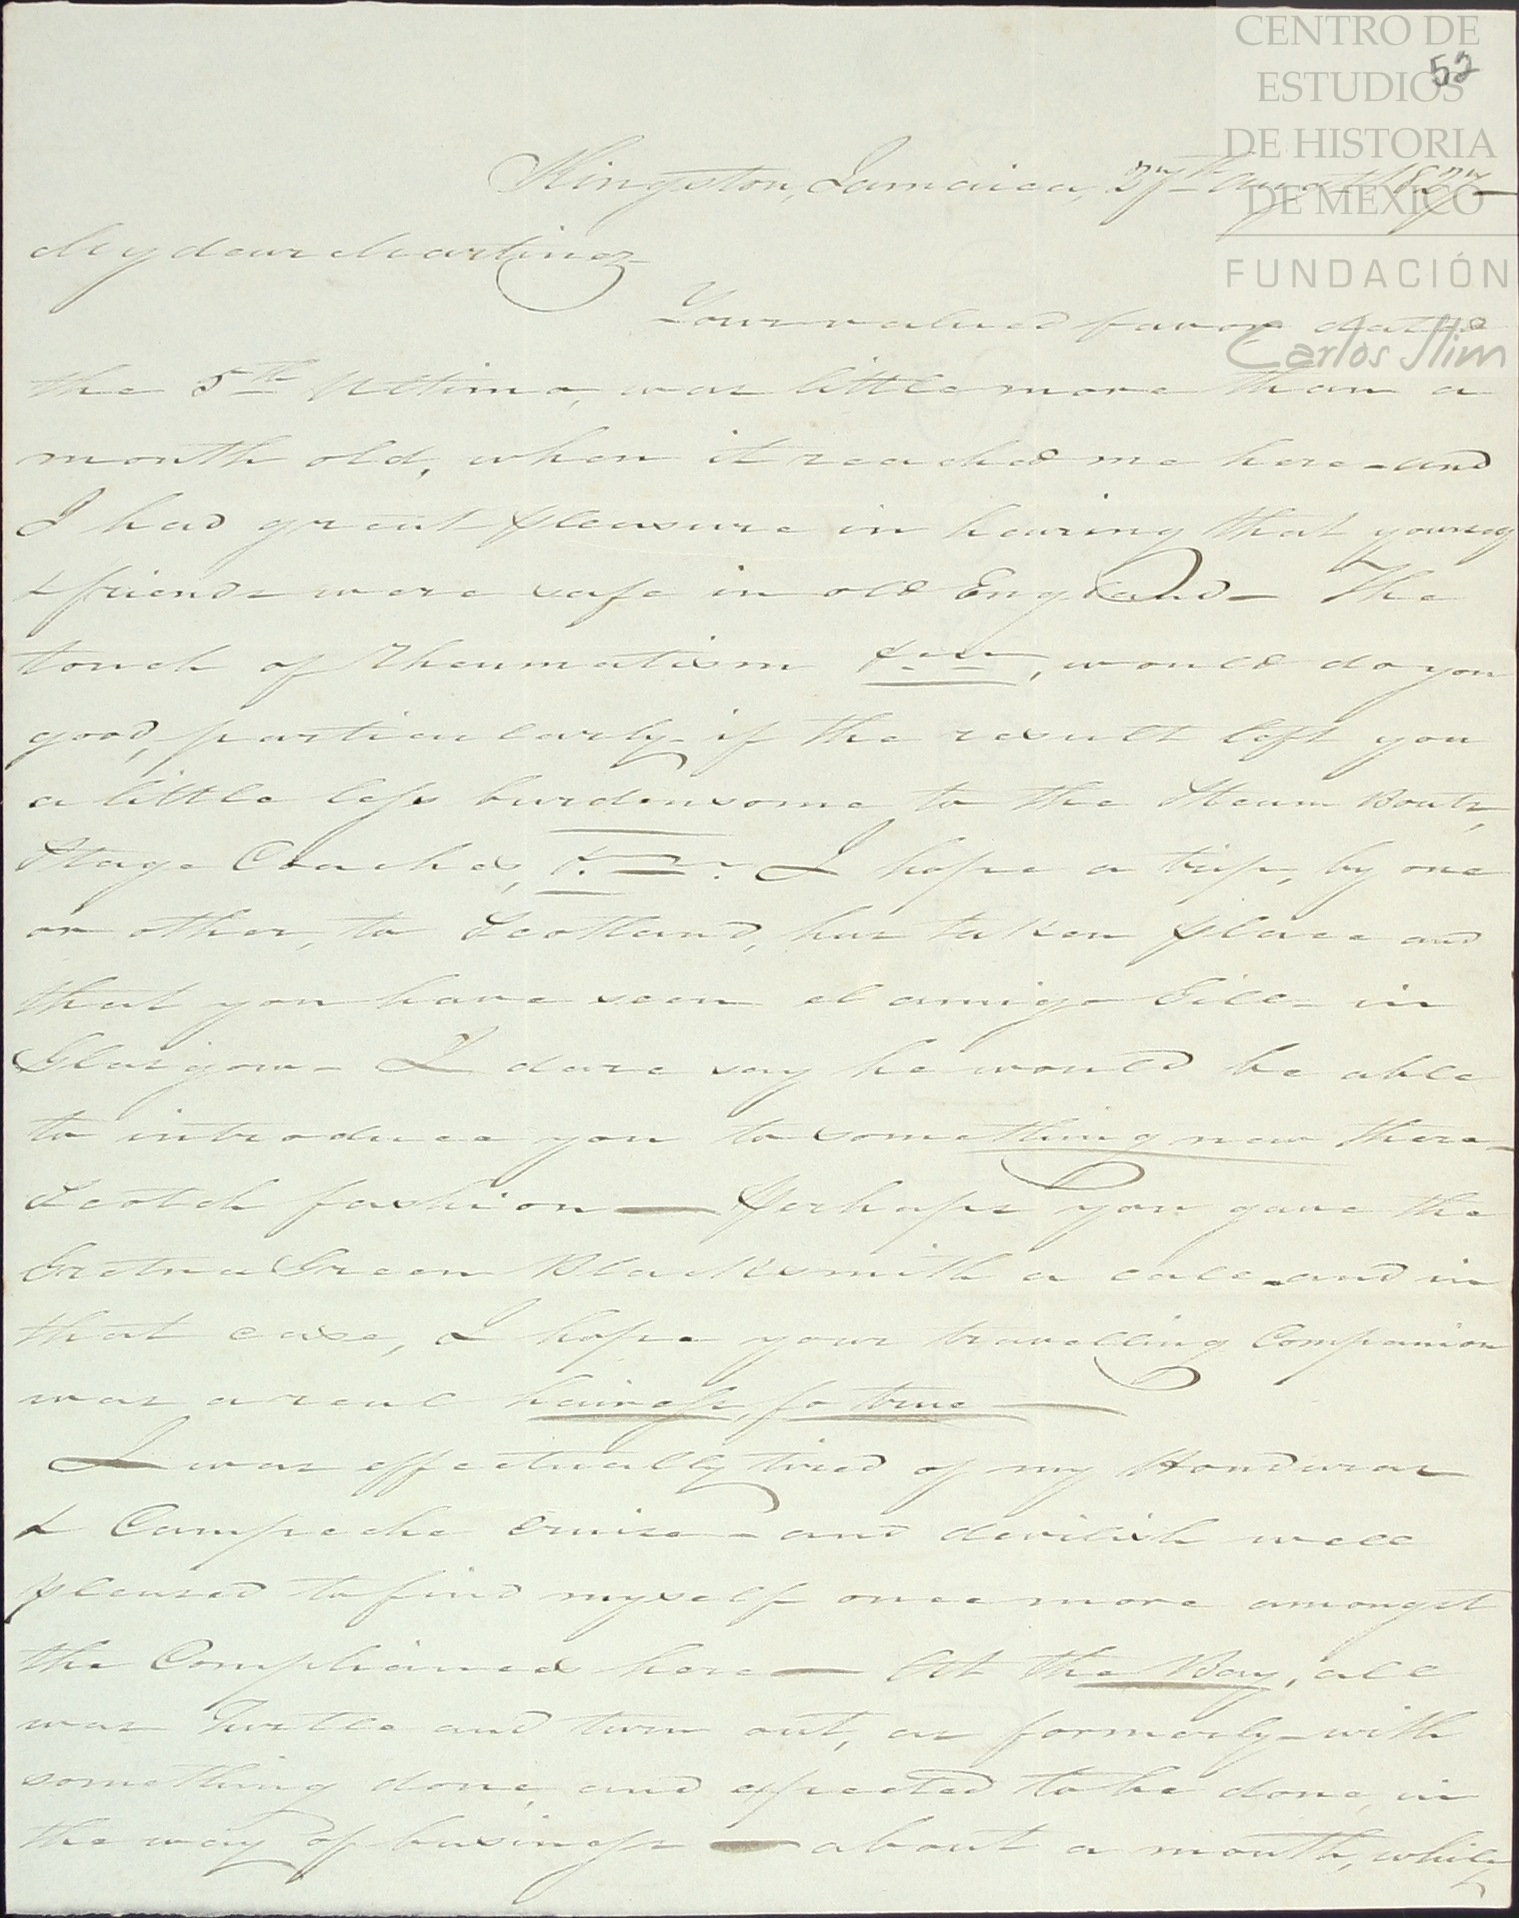 CENTRO DE
ESTUDIOS
DE HISTORIA
DE MÉXICO
FUNDACIÓN
Carlos Slim
52
Kingston, Jamaica, 27th Augt
My dear Martinez
Your valued favor dated
the 5th Ultimo, was little more than a
month old, when it reached me here - and
I had great pleasure in hearing that young
& friends were safe in old England - The
touch of Rheumatism, would do you
good, particularly if the result left you
a little less burdensome to the Steam Boats,
Stage Coaches, &c. I hope a trip, by one
or other, to Scotland, has taken place and
that you have seen el amigo in
Glasgow - I dare say he would be able
to introduce you to something new there -
Scotch fashion — Perhaps you gave the
Gretna Green Blacksmith a call - and in
that case, I hope your travelling Companion
was a real hairess, fo true —
I was effectually tired of my Honduras
& Campeche Cruise - and devilish well
pleased to find myself once more amongst
the here — At the Bay, all
was Turtle and turn out, as formerly - with
something done, and expected to be done, in
the way of business — about a month, while